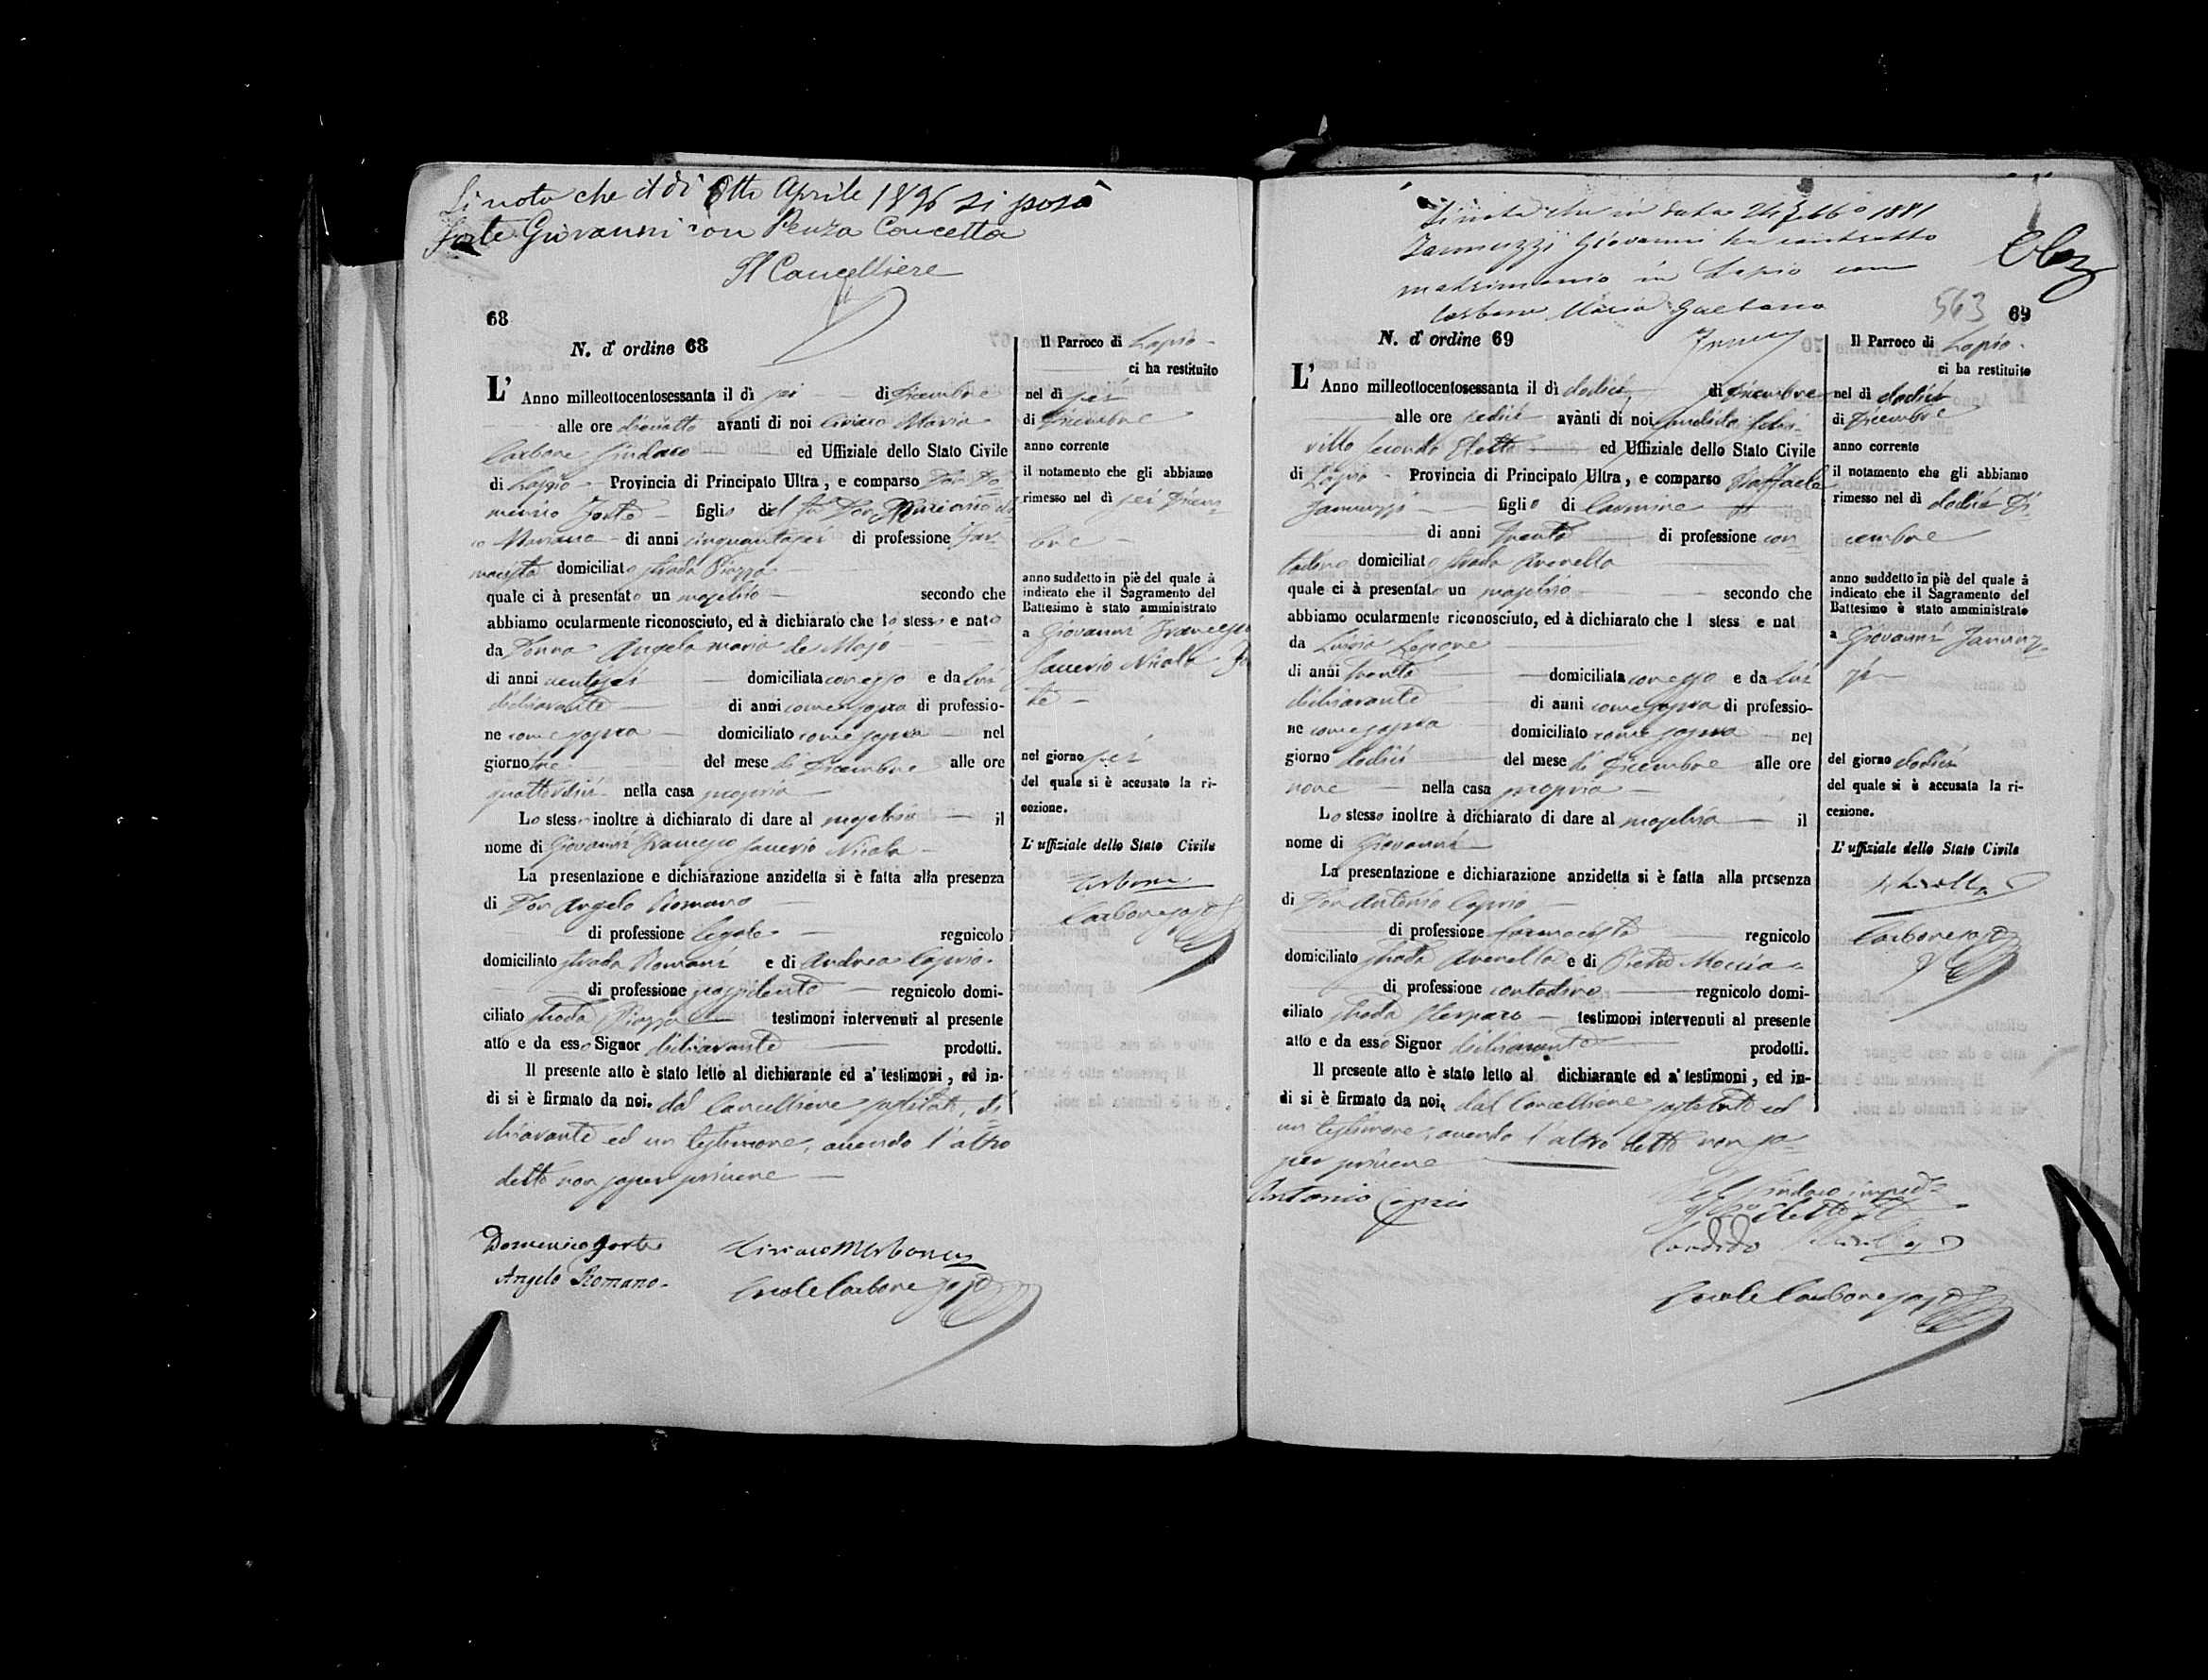 Si nota che il dì Otto Aprile 1896 si sposò
Forte Giovanni con Penza Concetta
Il Cancelliere
68
N. d' ordine 68
L' Anno milleottocentosessanta il dì sei di Dicembre
alle ore diciotto avanti di noi Ciriaco Maria
Carbone Sindaco ed Uffiziale dello Stato Civile
di Lapio Provincia di Principato Ultra, e comparso Don Do=
menico Forte figlio del fu Don Mariano
di anni cinquantasei di professione Far=
macista domiciliato strada Piazza
quale ci à presentato un maschio secondo che
abbiamo ocularmente riconosciuto, ed à dichiarato che lo stesso e nato
da Donna Angela maria de Majo
di anni ventisei domiciliata con esso e da lui
dichiarante di anni come sopra di professio-
ne come sopra domiciliato come sopra nel
giorno tre del mese di Dicembre alle ore
quattordici nella casa propria
Lo stesso inoltre à dichiarato di dare al maschio il
nome di Giovanni Francesco Saverio Nicola
La presentazione e dichiarazione anzidetta si è fatta alla presenza
di Don Angelo Romano
di professione legale regnicolo
domiciliato strada Romani e di Andrea Caprio
di professione possidente regnicolo domi-
ciliato strada Piazza testimoni intervenuti al presente
atto e da esso Signor dichiarante prodotti.
Il presente atto è stato letto al dichiarante ed a' testimoni, ed in-
di si è firmato da noi, dal Cancelliere sostituto, di=
chiarante ed un testimone, avendo l'altro
detto non saper scrivere
Domenico Forte
Angelo Romano
Ciriaco M Carbone
Ercole Carbone sost
Il Parroco di Lapio
ci ha restituito
nel dì sei
di Dicembre
anno corrente
il notamento che gli abbiamo
rimesso nel dì sei Dicem=
bre
anno suddetto in piè del quale à
indicato che il Sagramento del
Battesimo è stato amministrato
a Giovanni Francesco
Saverio Nicola For
te
nel giorno sei
del quale si è accusato la ri-
cezione.
L' uffiziale dello Stato Civile
Carbone
Carbone sost
Si nota che in data 24 Febb° 1881
Jannuzzi Giovanni ha contratto
matrimonio in Lapio con
Carbone Maria Gaetana
563
69
N. d' ordine 69
L' Anno milleottocentosessanta il dì dodici di Dicembre
alle ore sedici avànti di noi Candido
secondo Eletto ed Uffiziale dello Stato Civile
di Lapio Provincia di Principato Ultra, e comparso Raffaele
Jannuzzi figlio di Carmine
di anni trenta di professione con=
tadino domiciliato strada Averella
quale ci à presentato un maschio secondo che
abbiamo ocularmente riconosciuto, ed à dichiarato che l stess e nat
da Luisa Lepore
di anni trenta domiciliata con esso e da lui
dichiarante di anni come sopra di professio-
ne come sopra domiciliato come sopra nel
giorno dodici del mese di Dicembre alle ore
nove nella casa propria
Lo stesso inoltre à dichiarato di dare al maschio il
nome di Giovanni
La presentazione e dichiarazione anzidetta si è fatta alla presenza
di Don Antonio Caprio
di professione farmacista regnicolo
domiciliato strada Averella e di Pietro Moccia
di professione contadino regnicolo domi-
ciliato strada testimoni intervenuti al presente
atto e da esso Signor dichiarante prodotti.
Il presente atto è stato letto al dichiarante ed a' testimoni, ed in-
di si è firmato da noi, dal Cancelliere sostituto ed
un testimone, avendo l'altro detto non sa=
per scrivere
Antonio Caprio
Pel Sindaco imped°
Candido
Ercole Carbone sost
Il Parroco di Lapio
ci ha restituito
nel dì dodici
di Dicembre
anno corrente
il notamento che gli abbiamo
rimesso nel dì dodici Di=
cembre
anno suddetto in piè del quale à
indicato che il Sagramento del
Battesimo è stato amministrato
a Giovanni Jannuz=
zi
del giorno dodici
del quale si è accusata la ri-
cezione.
L' uffiziale dello Stato Civile
Carbone sost